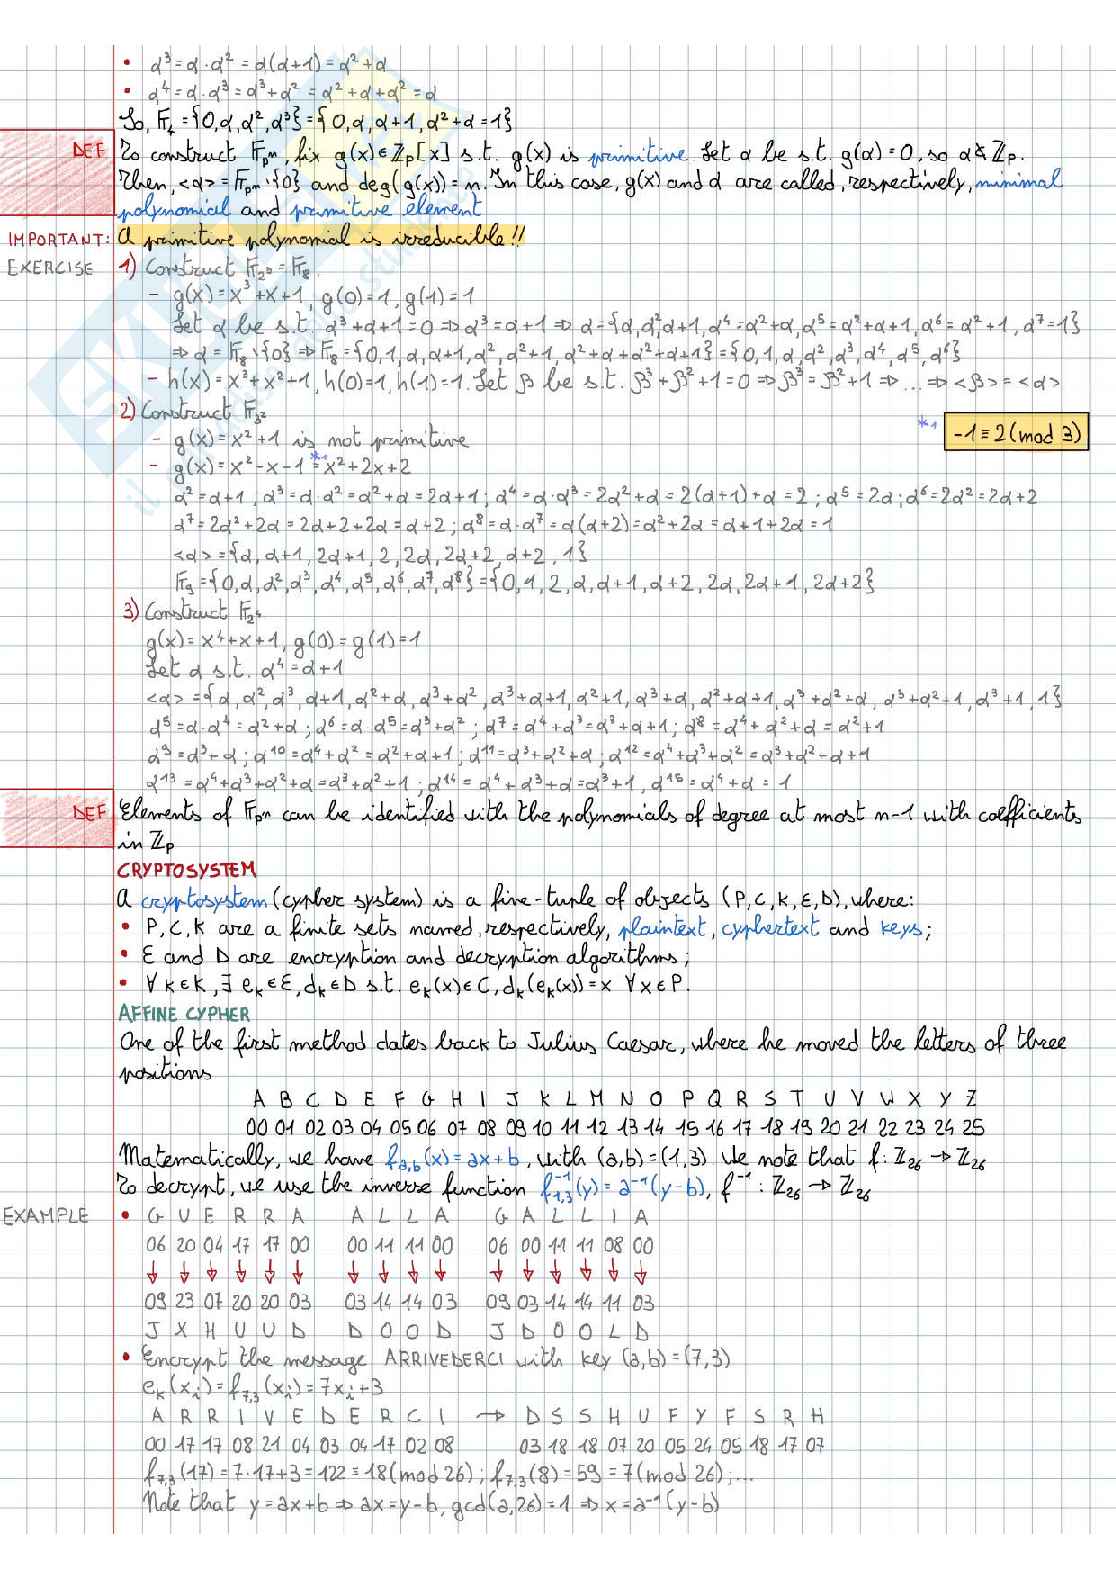 • α³=α·α² = α(α+1)=α²+α
• α⁴=α·α³=α³+α² = α²+α+α²=α
So, F₄={0,α,α²,α³}={0,α,α+1,α²+α=1}
DEF To construct F_pⁿ, fix g(x)∈ℤ_p[x] s.t. g(x) is primitive. Let α be s.t. g(α)=0, so α∉ℤ_p.
Then, <α>=F_pⁿ\{0} and deg(g(x))=n. In this case, g(x) and α are called, respectively, minimal
polynomial and primitive element
IMPORTANT: A primitive polynomial is irreducible!!
EXERCISE 1) Construct F_2³=F₈.
- g(x)=x³+x+1, g(0)=1, g(1)=1
Let α be s.t. α³+α+1=0⇒α³=α+1⇒α={α,α²,α+1,α⁴=α²+α,α⁵=α²+α+1,α⁶=α²+1,α⁷=1}
⇒α=F₈\{0}⇒F₈={0,1,α,α+1,α²,α²+1,α²+α+α²+α+1}={0,1,α,α²,α³,α⁴,α⁵,α⁶}
- h(x)=x³+x²+1, h(0)=1, h(1)=1. Let β be s.t. β³+β²+1=0⇒β³=β²+1⇒...⇒<β>=<α>
2) Construct F_3²
*1 -1≡2(mod 3)
- g(x)=x²+1 is not primitive
- g(x)=x²-x-1 =*1 x²+2x+2
α²=α+1, α³=α·α²=α²+α=2α+1; α⁴=α·α³=2α²+α=2(α+1)+α=2; α⁵=2α; α⁶=2α²=2α+2
α⁷=2α²+2α=2α+2+2α=α+2; α⁸=α·α⁷=α(α+2)=α²+2α=α+1+2α=1
<α>={α,α+1,2α+1,2,2α,2α+2,α+2,1}
F₉={0,α,α²,α³,α⁴,α⁵,α⁶,α⁷,α⁸}={0,1,2,α,α+1,α+2,2α,2α+1,2α+2}
3) Construct F_2⁴
g(x)=x⁴+x+1, g(0)=g(1)=1
Let α s.t. α⁴=α+1
<α>={α,α²,α³,α+1,α²+α,α³+α²,α³+α+1,α²+1,α³+α,α²+α+1,α³+α²+α,α³+α²+1,α³+1,1}
α⁵=α·α⁴=α²+α; α⁶=α·α⁵=α³+α²; α⁷=α⁴+α³=α³+α+1; α⁸=α⁴+α²+α=α²+1
α⁹=α³+α; α¹⁰=α⁴+α²=α²+α+1; α¹¹=α³+α²+α; α¹²=α⁴+α³+α²=α³+α²+α+1
α¹³=α⁴+α³+α²+α=α³+α²+1; α¹⁴=α⁴+α³+α=α³+1, α¹⁵=α⁴+α=1
DEF Elements of F_pⁿ can be identified with the polynomials of degree at most n-1 with coefficients
in ℤ_p
CRYPTOSYSTEM
A cryptosystem (cypher system) is a five-tuple of objects (P,C,K,E,D), where:
• P,C,K are a finite sets named, respectively, plaintext, cyphertext and keys;
• E and D are encryption and decryption algorithms;
• ∀k∈K, ∃ e_k∈E, d_k∈D s.t. e_k(x)∈C, d_k(e_k(x))=x ∀x∈P.
AFFINE CYPHER
One of the first method dates back to Julius Caesar, where he moved the letters of three
positions
A B C D E F G H I J K L M N O P Q R S T U V W X Y Z
00 01 02 03 04 05 06 07 08 09 10 11 12 13 14 15 16 17 18 19 20 21 22 23 24 25
Matematically, we have f_a,b(x)=ax+b, with (a,b)=(1,3) We note that f:ℤ₂₆→ℤ₂₆
To decrypt, we use the inverse function f⁻¹_1,3(y)=a⁻¹(y-b), f⁻¹:ℤ₂₆→ℤ₂₆
EXAMPLE • G U E R R A A L L A G A L L I A
06 20 04 17 17 00 00 11 11 00 06 00 11 11 08 00
↓ ↓ ↓ ↓ ↓ ↓ ↓ ↓ ↓ ↓ ↓ ↓ ↓ ↓ ↓ ↓
09 23 07 20 20 03 03 14 14 03 09 03 14 14 11 03
J X H U U D D O O D J D O O L D
• Encrypt the message ARRIVEDERCI with key (a,b)=(7,3)
e_k(x_i)=f_7,3(x_i)=7x_i+3
A R R I V E D E R C I → D S S H U F Y F S R H
00 17 17 08 21 04 03 04 17 02 08 03 18 18 07 20 05 24 05 18 17 07
f_7,3(17)=7·17+3=122≡18(mod 26); f_7,3(8)=59=7(mod 26);...
Note that y=ax+b⇒ax=y-b, gcd(a,26)=1⇒x=a⁻¹(y-b)